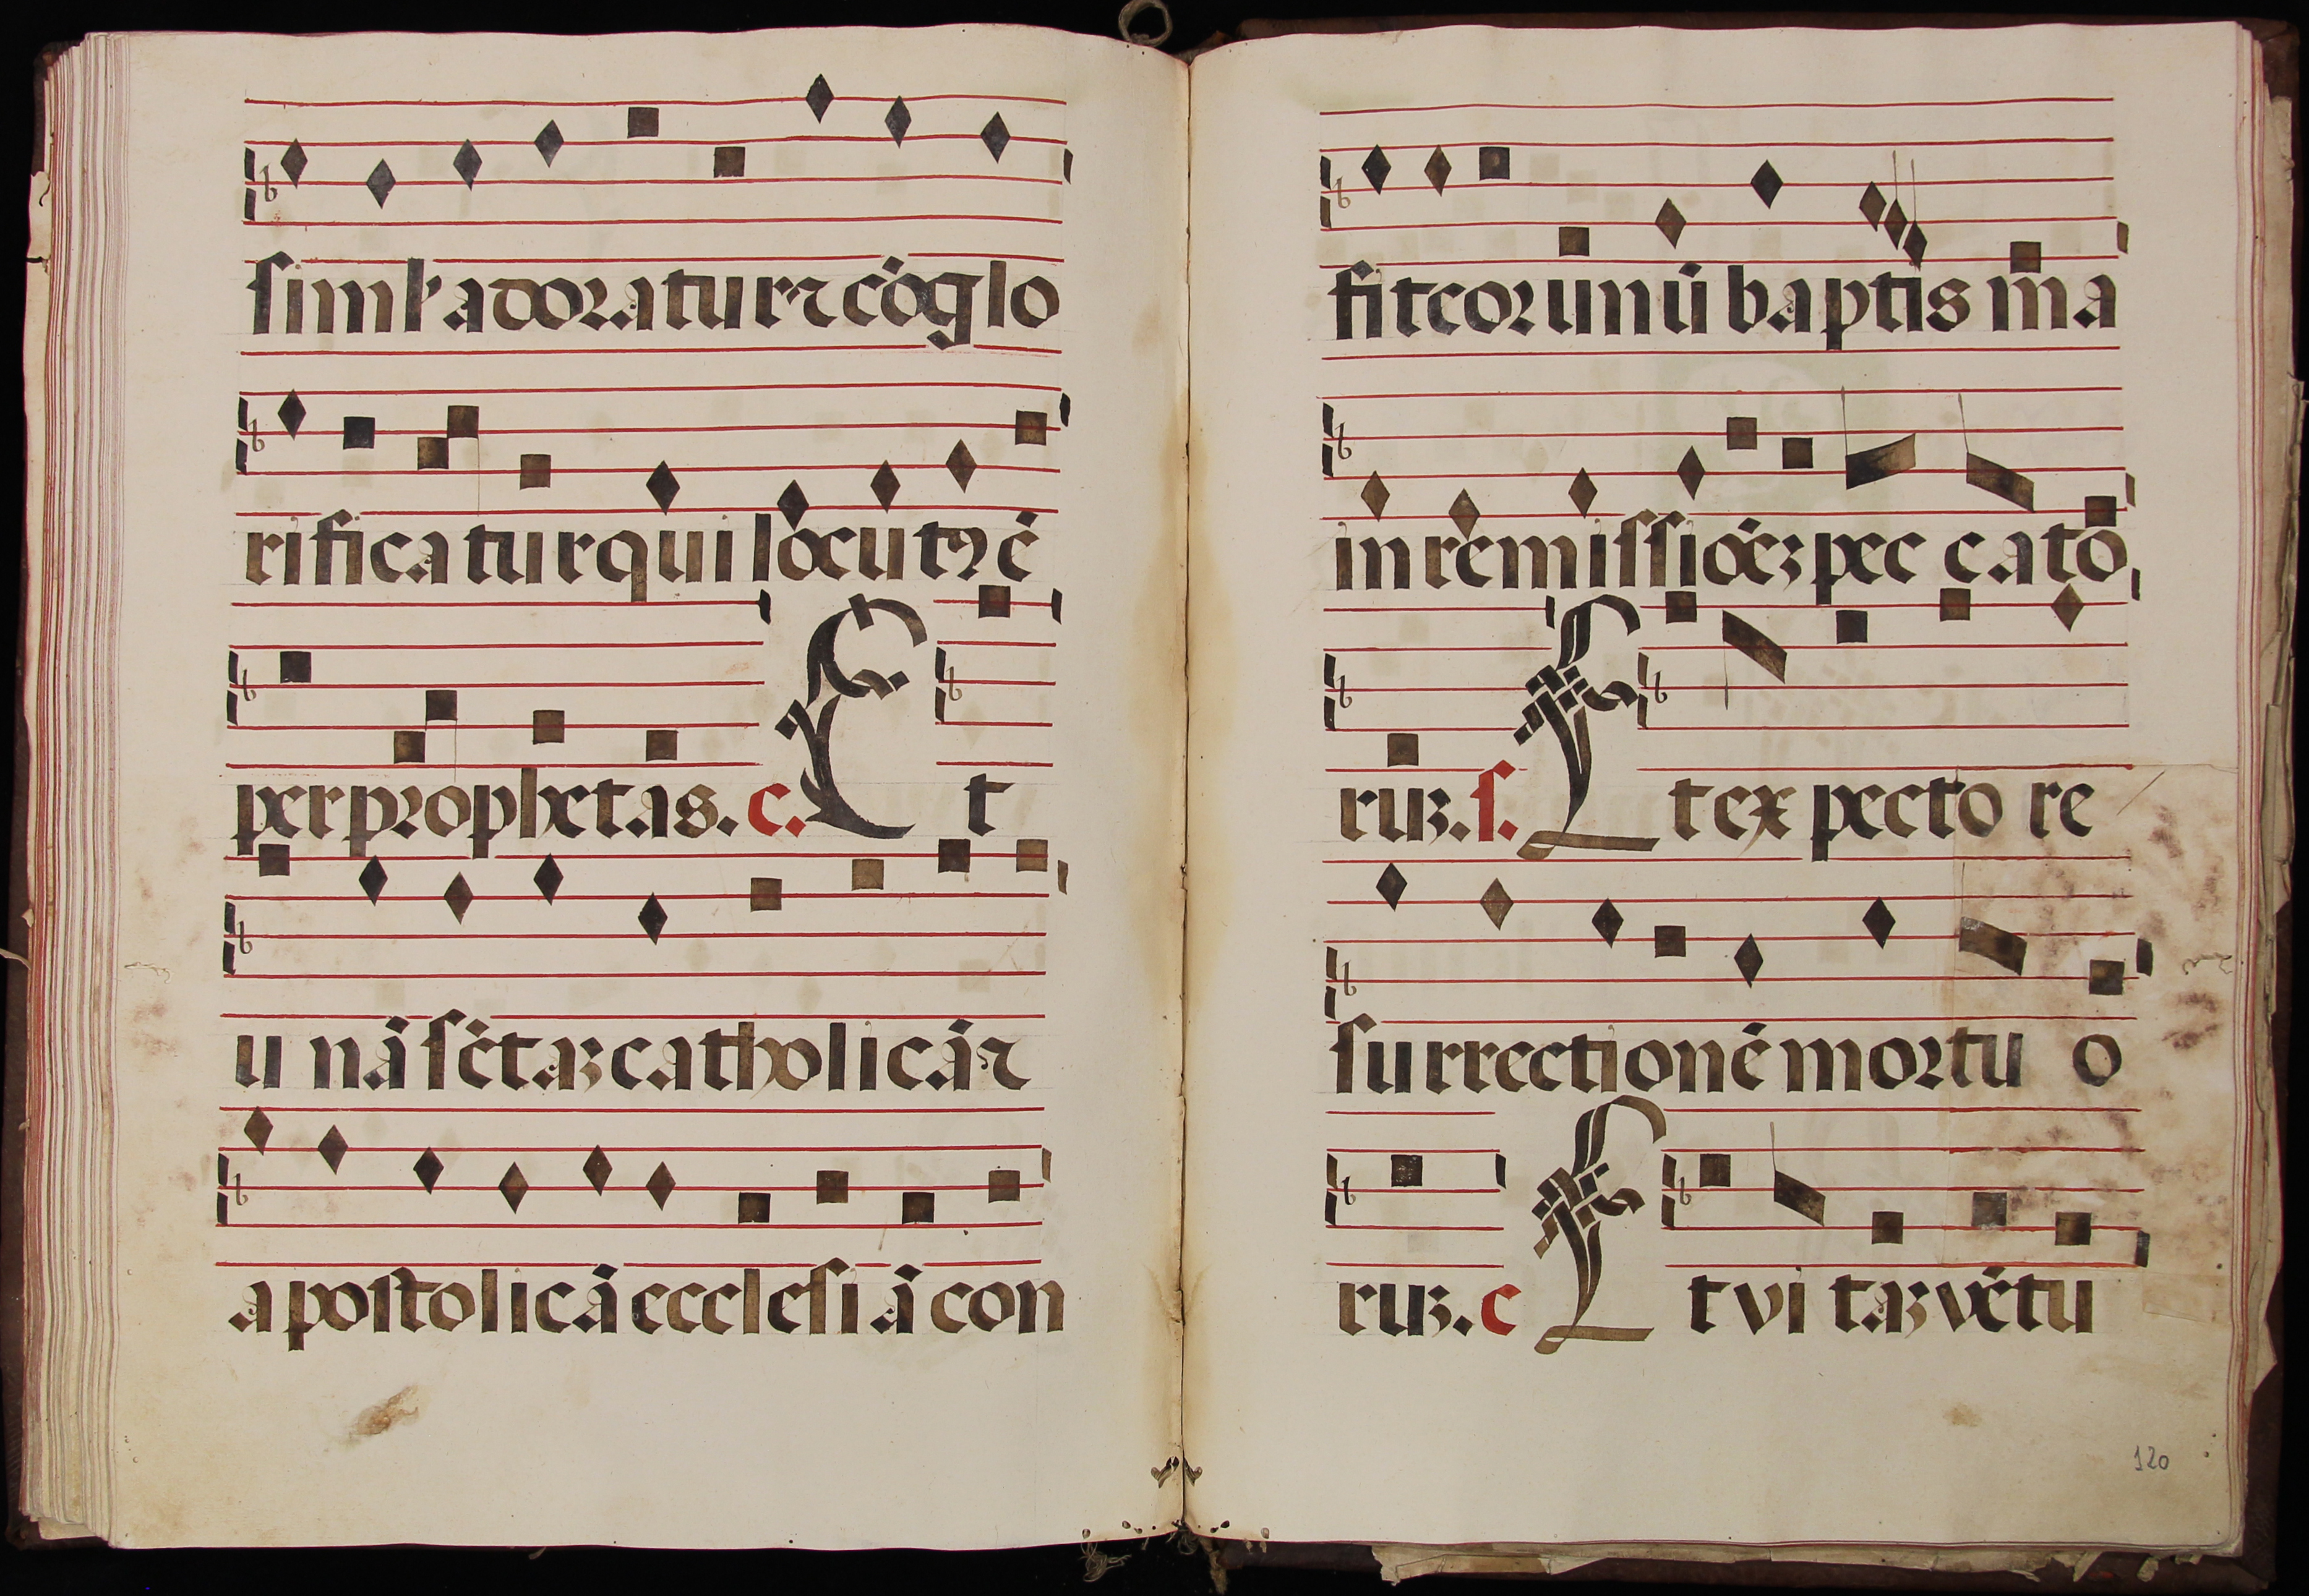 siml' adoratur ⁊ cōglo
rificatur qui locutꝰ ē
per prophetas. c. Et
unā sc̄taꝫ catholicā ⁊
apostolicā ecclesiā con
fiteor unū baptisma
in remissiōeꝫ peccato
ruꝫ. s. Et expecto re
surrectionē mortuo
ruꝫ. c Et vitaꝫ vētu
120